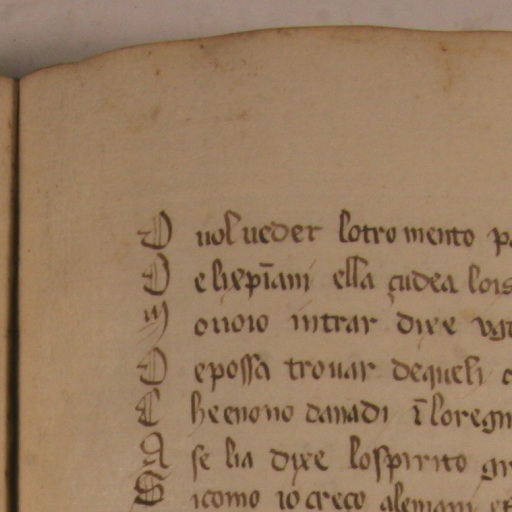 D uol ueder lotromento pa
D e lixp̄iani ella çudea lois
M onoio intrar dixe vgo
D epossa trouar dequeli c
C he enono danadi ī loregn
A se lia dixe lospirito gr
S icomo io creço alemani et